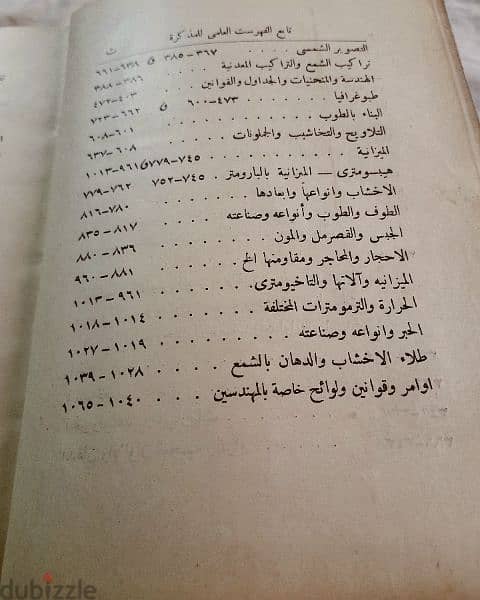 تابع الفهرست العلمى للمذكرة ث
التصوير الشمسى . . . . ٣٦٧-٣٨٥ ق ٦٣٨-٦٦١
تراكيب الشمع والتراكيب المعدنية . . . ٣٨٦-٣٨٨
الهندسة والمنحنيات والجداول والقوانين ٤٠٣-٤٧٢
طبوغرافيا . . . . . . ٤٧٣-٦٠٠ ق ٦٦٢-٧٢٣
البناء بالطوب . . . . . . . ٦٠١-٦٠٨
التلاويح والتخاشيب والجملونات . . . ٦٠٨-٦٣٧
الميزانية . . . . . ٧٤٥-٧٧٩ ق ٩٦١-١٠١٣
هيبسومترى — الميزانية بالبارومتر . ٧٤٥-٧٥٢ ٧٦٢-٧٧٩
الاخشاب وانواعها وابعادها . . . . ٧٨٠-٨١٦
الطوف والطوب وأنواعه وصناعته . . . ٨١٧-٨٣٥
الجبس والقصرمل والمون . . . . . ٨٣٦-٨٨٠
الاحجار والمحاجر ومقاومتها الخ . . . . ٨٨١-٩٦٠
الميزانيه وآلاتها والتاخيومترى. . . . . ٩٦١-١٠١٣
الحرارة والترمومترات المختلفة . . . . ١٠١٤-١٠١٨
الحبر وانواعه وصناعته . . . . . ١٠١٩-١٠٢٧
طلاء الاخشاب والدهان بالشمع . . . . ١٠٢٨-١٠٣٩
اوامر وقوانين ولوائح خاصة بالمهندسين . . . . ١٠٤٠-١٠٦٥
dubizzle